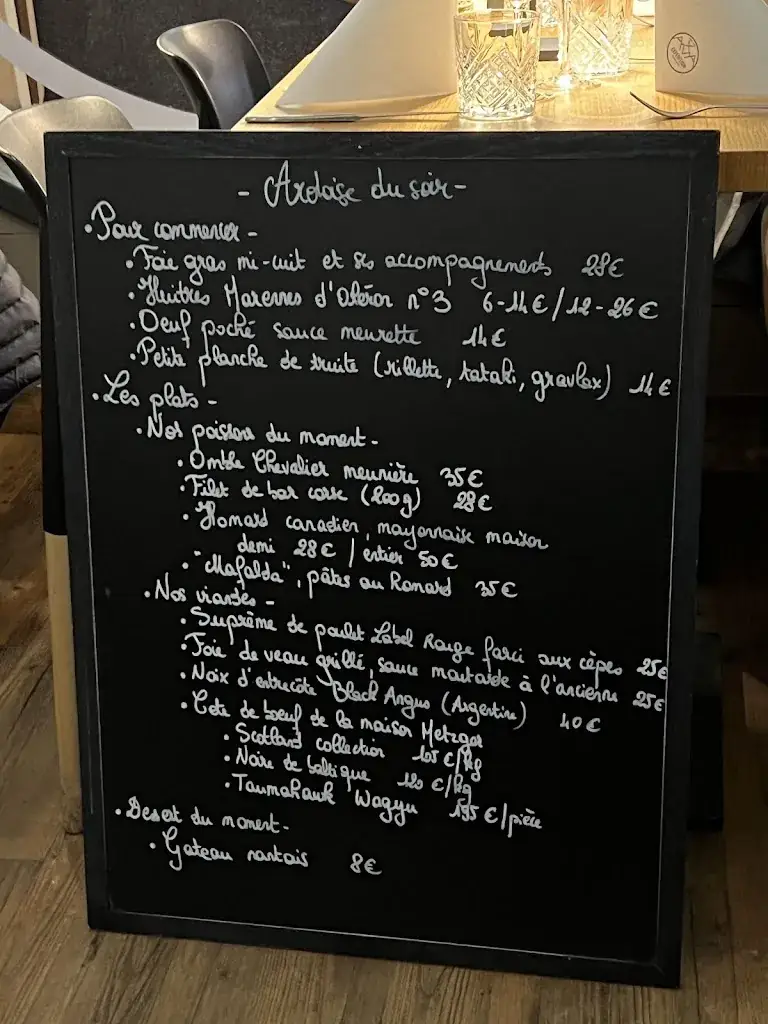 - Ardoise du soir -
• Pour commencer -
• Foie gras mi-cuit et ses accompagnements 28€
• Huîtres Marennes d'Oléron n°3 6-14€ / 12-26€
• Oeuf poché sauce meurette 14€
• Petite planche de truite (rillette, tataki, gravlax) 14€
• Les plats -
• Nos poissons du moment -
• Omble Chevalier meunière 35€
• Filet de bar corse (200g) 28€
• Homard canadien, mayonnaise maison
demi 28€ / entier 50€
• "Mafalda", pâtes au Homard 35€
• Nos viandes -
• Suprême de poulet Label Rouge farci aux cèpes 25€
• Foie de veau grillé, sauce moutarde à l'ancienne 25€
• Noix d'entrecôte Black Angus (Argentine) 40€
• Cote de boeuf de la maison Metzger
• Scotland collection 105€/kg
• Noire de baltique 120€/kg
• Taumahauk Wagyu 195€/pièce
• Desert du moment -
• Gateau nantais 8€